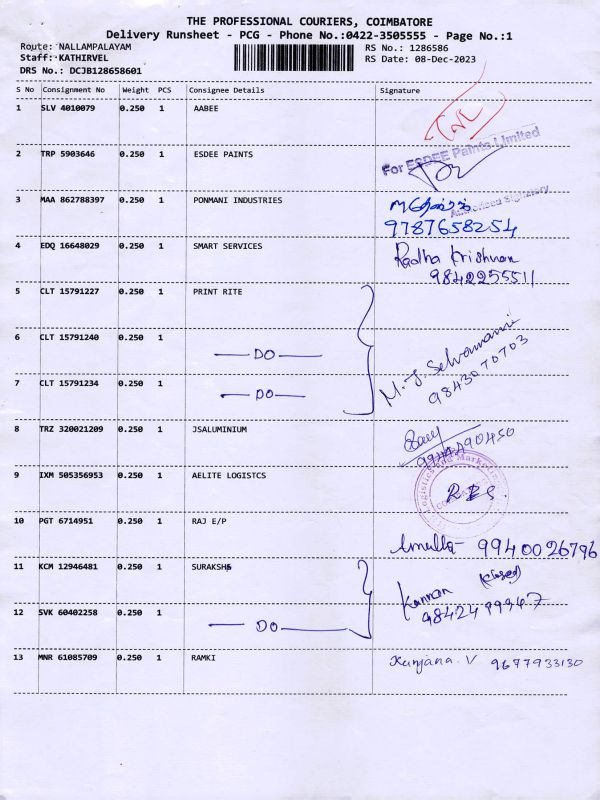 THE PROFESSIONAL COURIERS, COIMBATORE
Delivery Runsheet - PCG - Phone No.:0422-3505555 - Page No.:1
Route: NALLAMPALAYAM RS No.: 1286586
Staff: KATHIRVEL RS Date: 08-Dec-2023
DRS No.: DCJB128658601
S No Consignment No Weight PCS Consignee Details Signature
1 SLV 4010079 0.250 1 AABEE
2 TRP 5903646 0.250 1 ESDEE PAINTS For ESDEE Paints Limited
Authorised Signatory
3 MAA 862788397 0.250 1 PONMANI INDUSTRIES
9787658254
4 EDQ 16648029 0.250 1 SMART SERVICES Radha Krishnan
9842255511
5 CLT 15791227 0.250 1 PRINT RITE
6 CLT 15791240 0.250 1 DO M. J. Selvamani
9843070703
7 CLT 15791234 0.250 1 DO
8 TRZ 320021209 0.250 1 JSALUMINIUM
9 IXM 505356953 0.250 1 AELITE LOGISTCS Logistics and Marketing
10 PGT 6714951 0.250 1 RAJ E/P 9940026796
11 KCM 12946481 0.250 1 SURAKSHA Kannan (closed)
12 SVK 60402258 1 DO
13 MNR 61085709 0.250 1 RAMKI Kunjana. V 9677933130